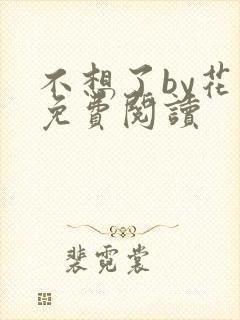 不想了by花
免費閱讀
裴霓裳